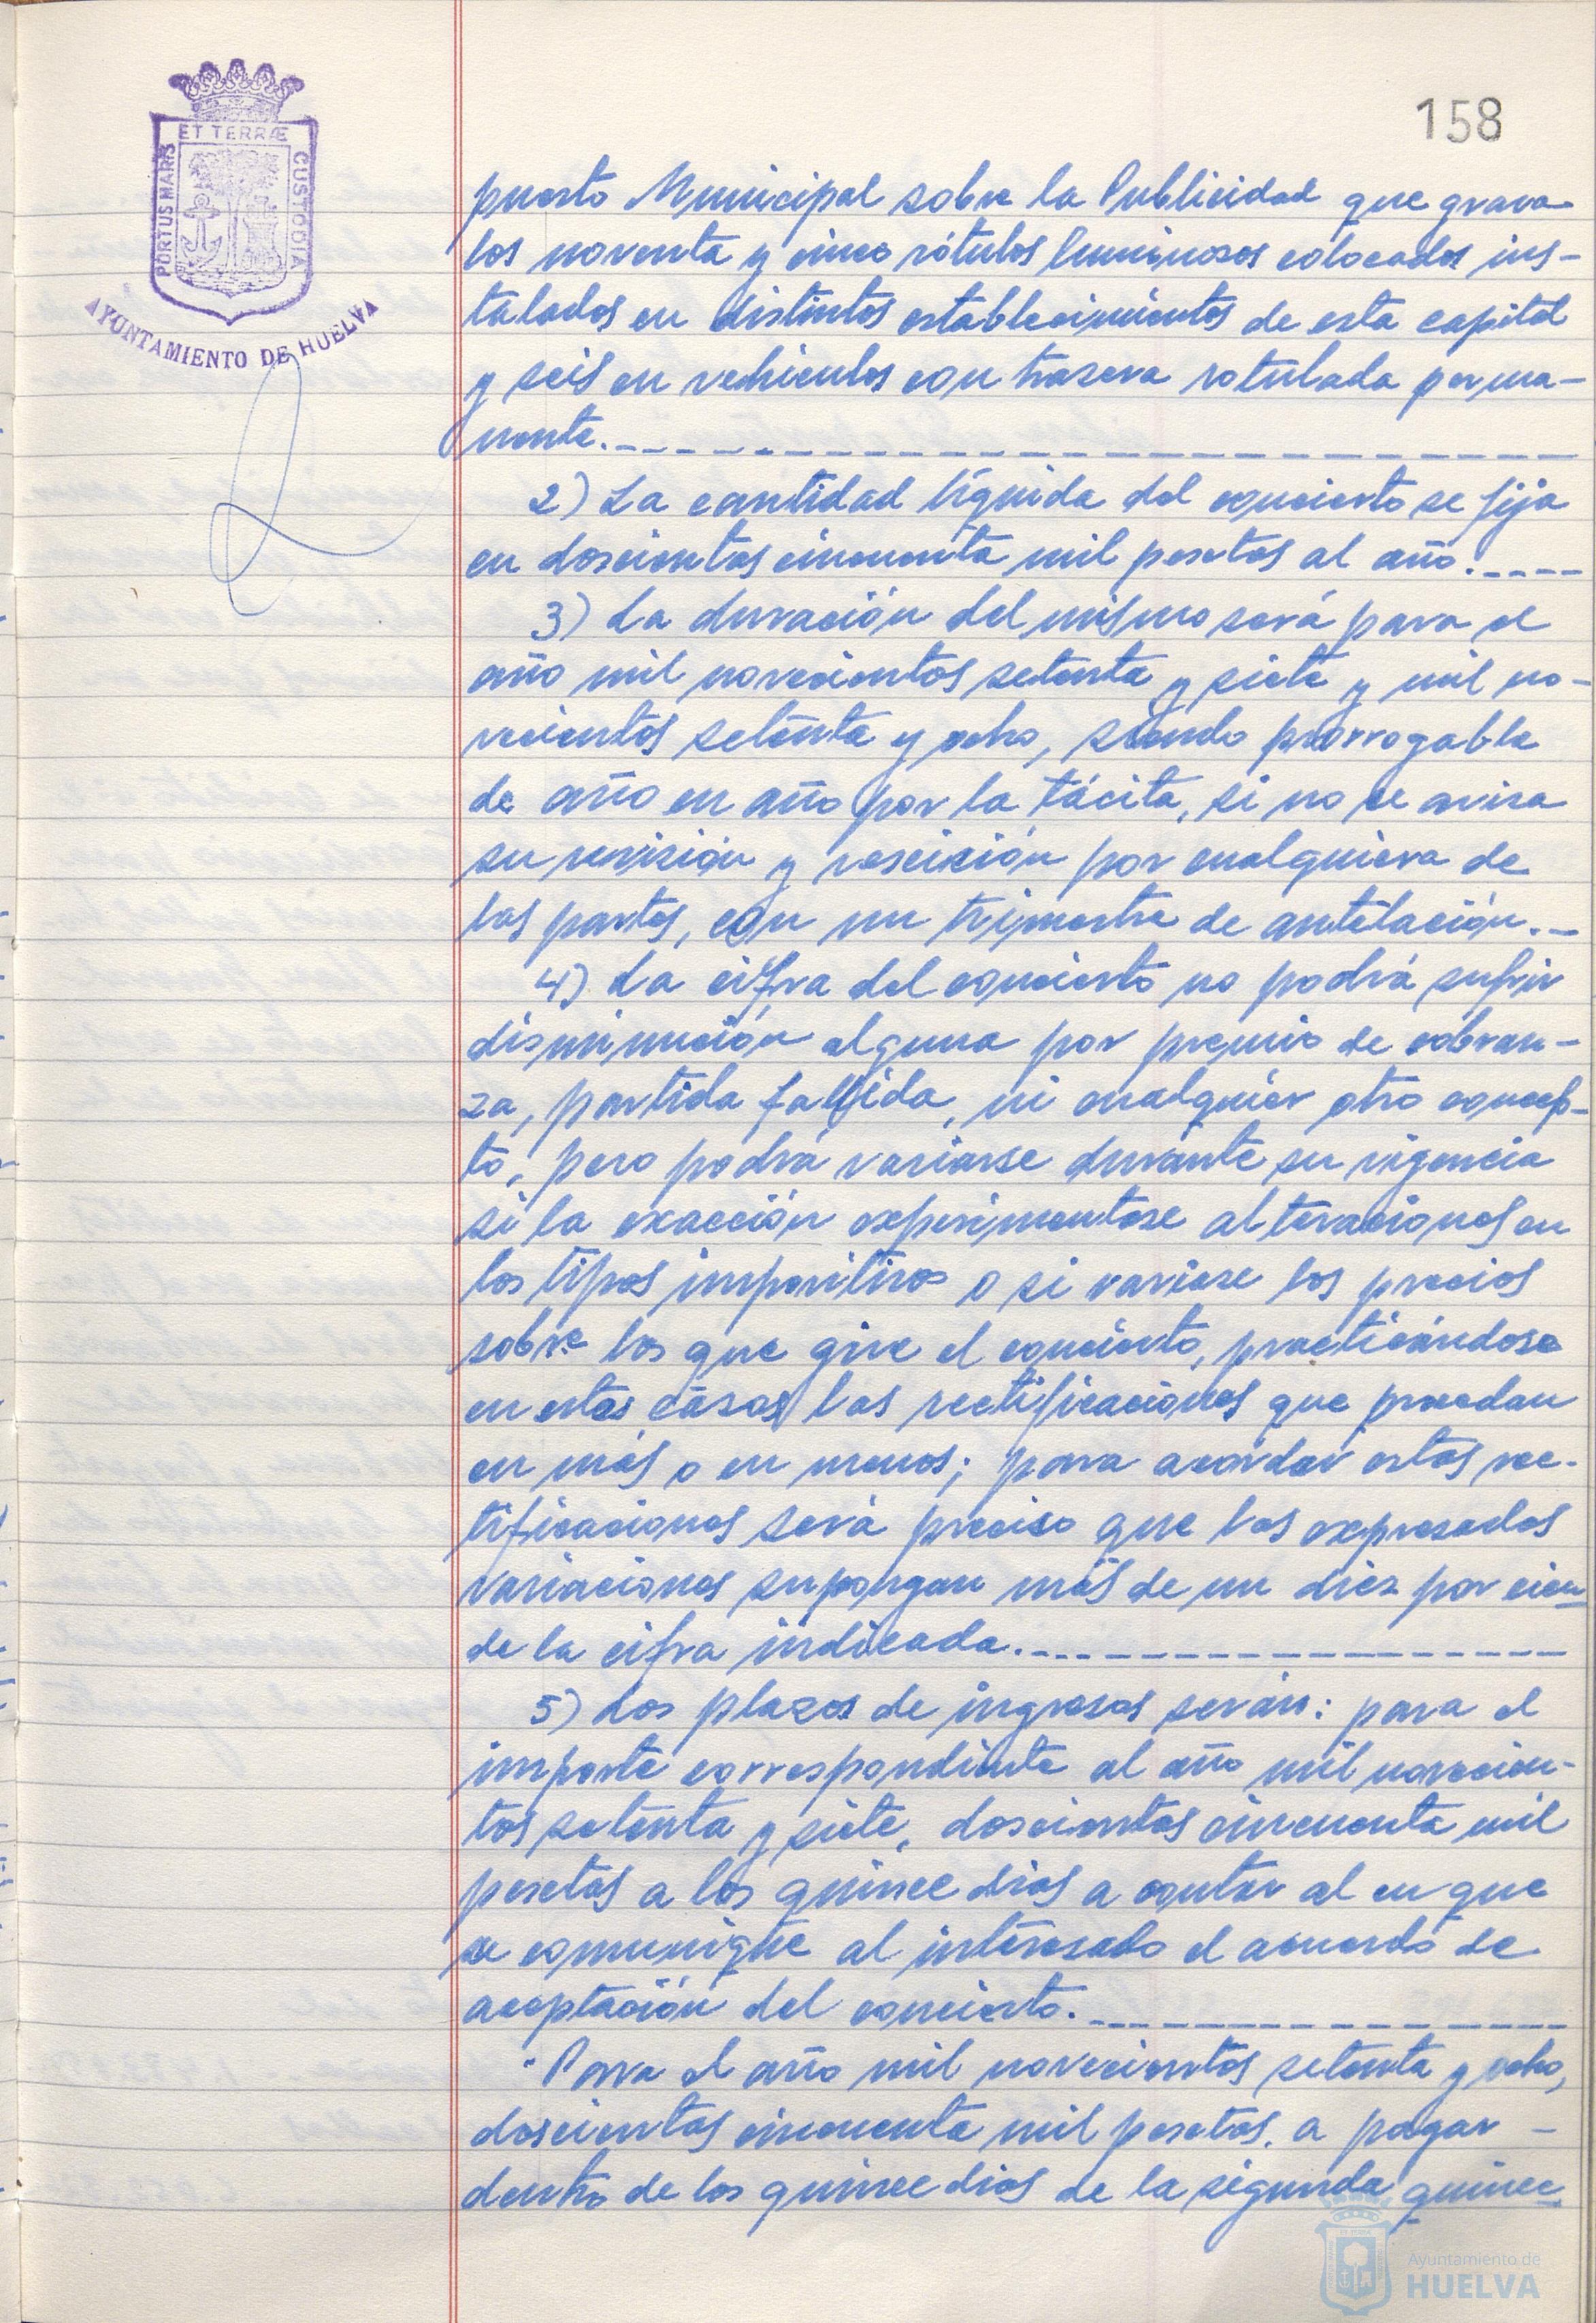 158
ET TERRÆ
PORTUS MARIS
CUSTODIA
AYUNTAMIENTO DE HUELVA
puesto Municipal sobre la Publicidad que grava
los noventa y cinco rótulos luminosos colocados ins-
talados en distintos establecimientos de esta capital
y seis en vehiculos con trasera rotulada perma-
nente.
2) La cantidad líquida del concierto se fija
en doscientas cincuenta mil pesetas al año.
3) La duración del mismo será para el
año mil novecientos setenta y siete y mil no-
vecientos setenta y ocho, siendo prorrogable
de año en año por la tácita, si no se avisa
su revisión y rescisión por cualquiera de
las partes, con un trimestre de antelación.
4) La cifra del concierto no podrá sufrir
disminución alguna por premio de cobran-
za, partida fallida, ni cualquier otro concep-
to, pero podrá variarse durante su vigencia
si la exacción experimentase alteraciones en
los tipos impositivos o si variase los precios
sobre los que gire el concierto, practicándose
en estos casos las rectificaciones que procedan
en más o en menos; para acordar estas rec-
tificaciones será preciso que las expresadas
variaciones supongan más de un diez por cien
de la cifra indicada.
5) Los plazos de ingresos serán: para el
importe correspondiente al año mil novecien-
tos setenta y siete, doscientas cincuenta mil
pesetas a los quince dias a contar al en que
se comunique al interesado el acuerdo de
aceptación del concierto.
Para el año mil novecientos setenta y ocho,
doscientas cincuenta mil pesetas, a pagar
dentro de los quince dias de la segunda quince
Ayuntamiento de
HUELVA